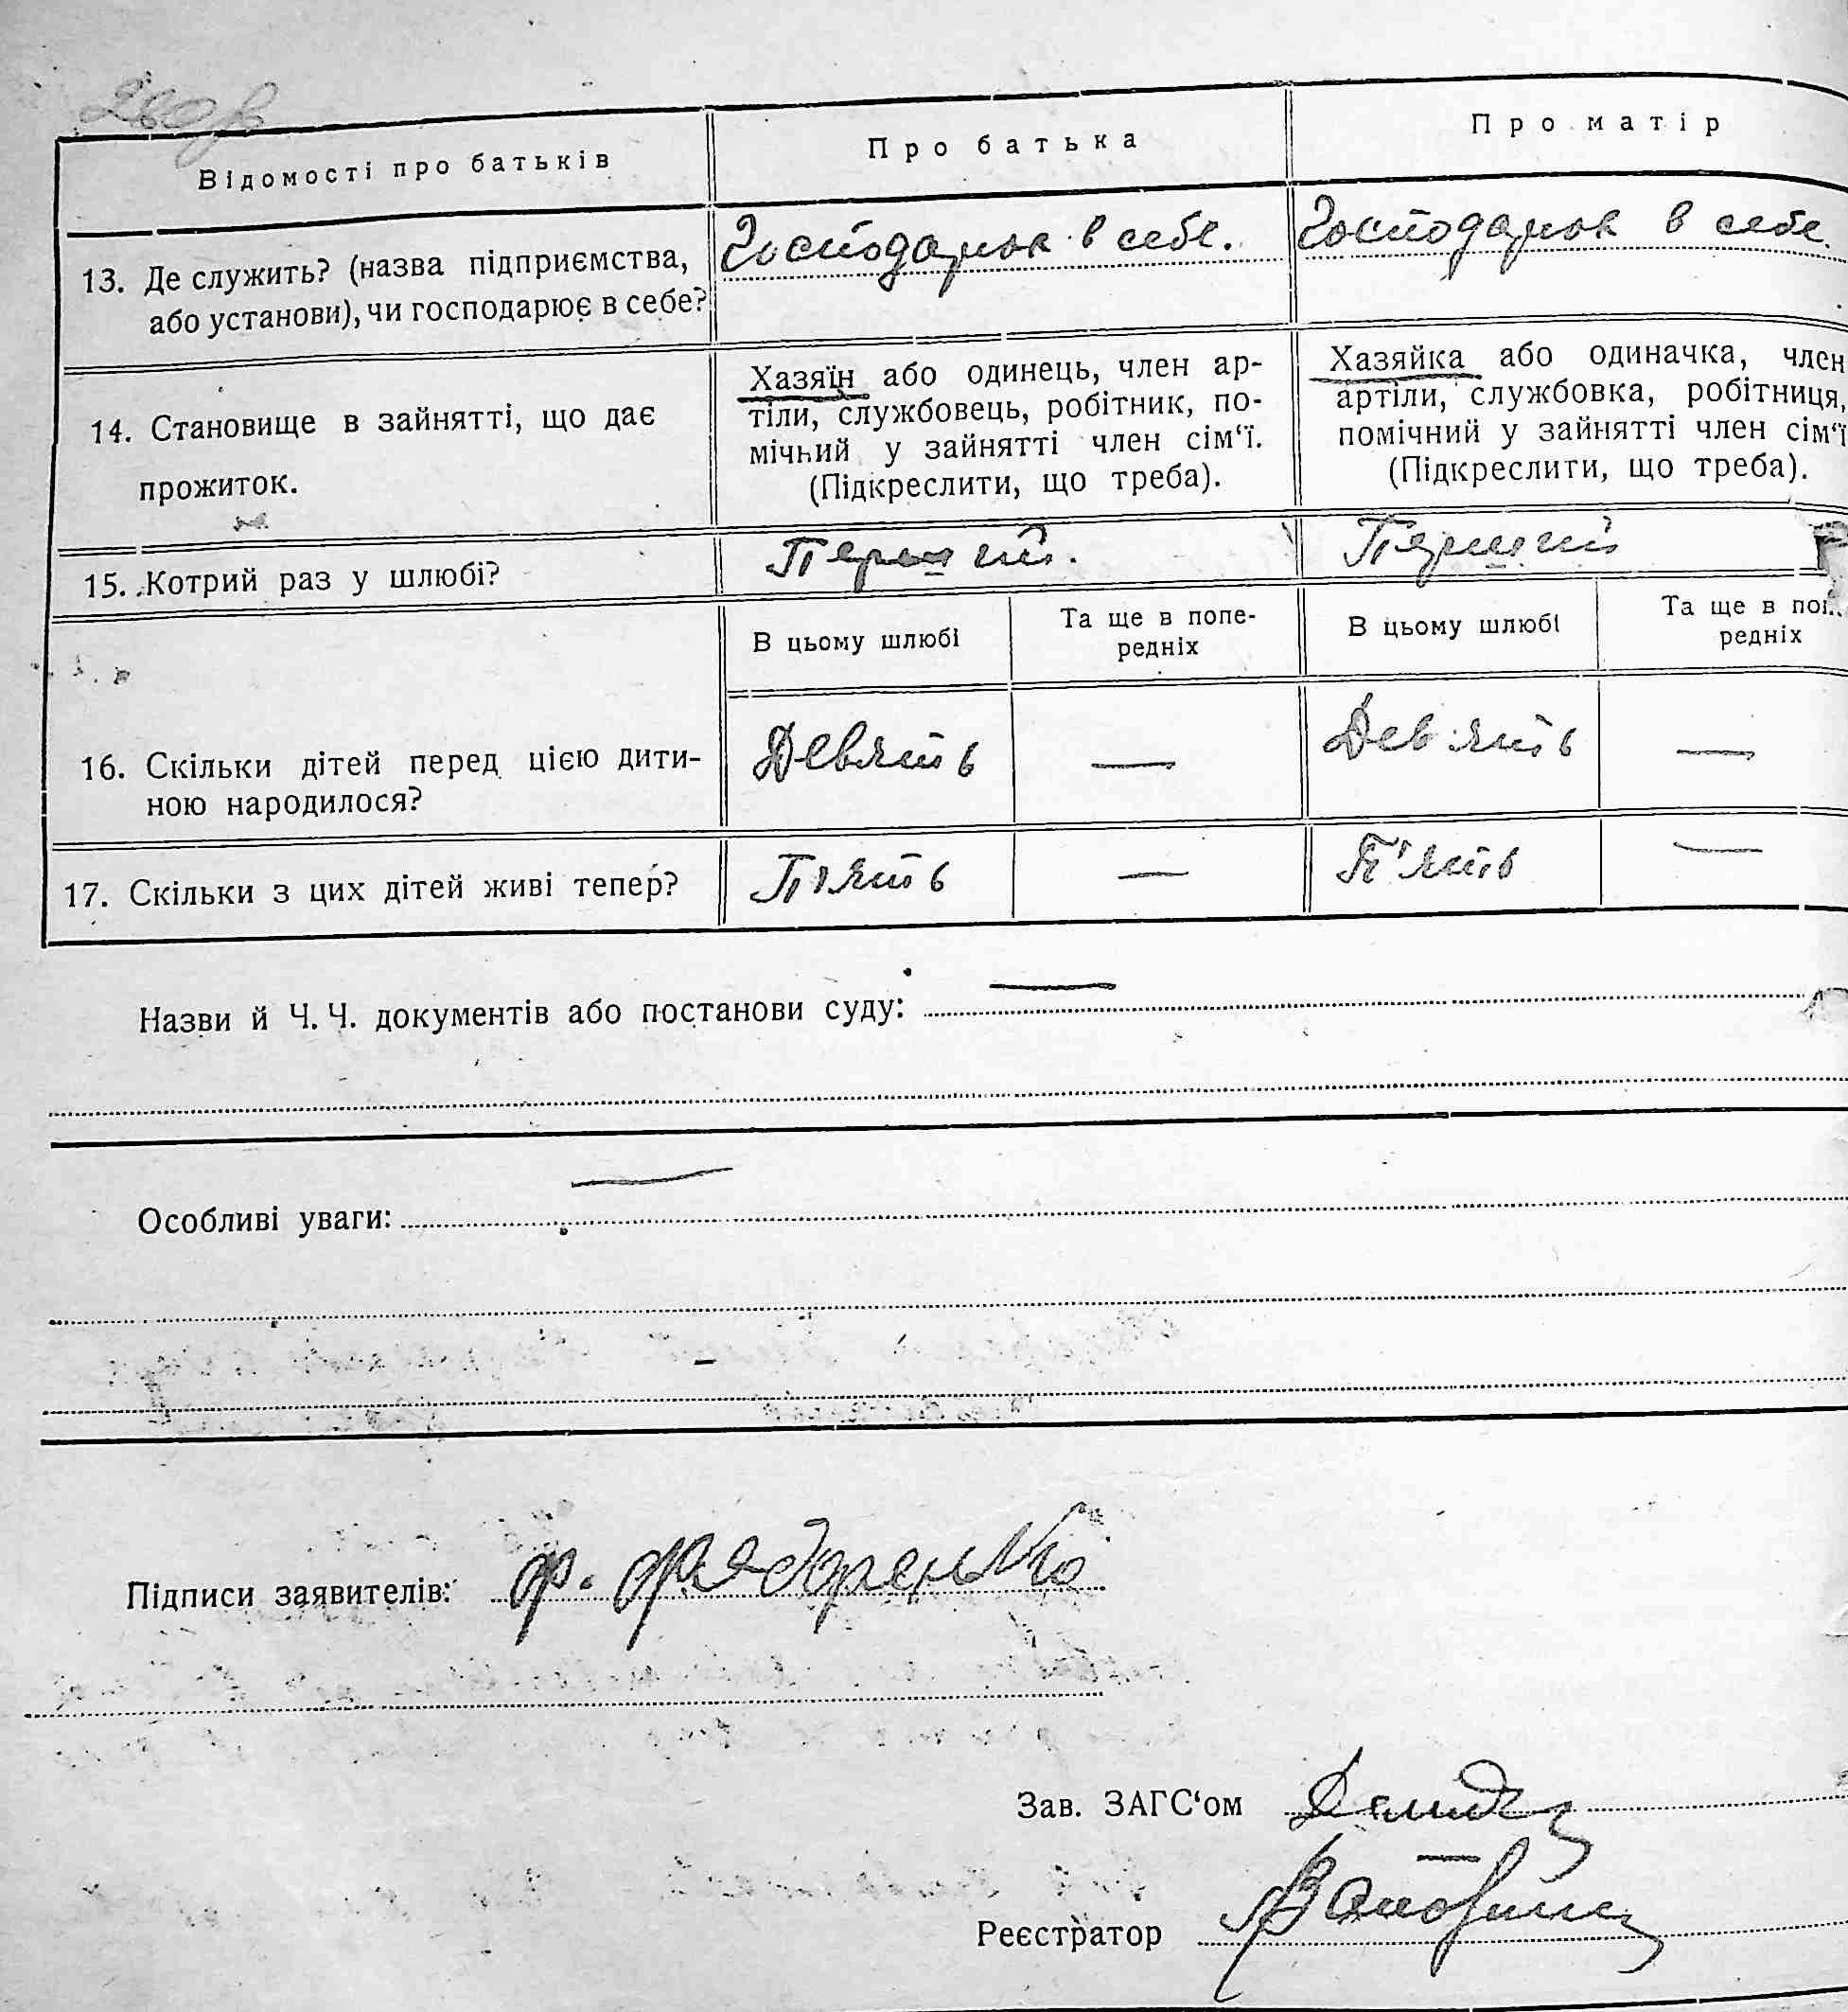 Відомості про батьків
Про батька
Про матір
13. Де служить? (назва підприємства,
або установи), чи господарює в себе?
Господарює в себе.
Господарює в себе.
14. Становище в зайнятті, що дає
прожиток.
Хазяїн або одинець, член ар-
тіли, службовець, робітник, по-
мічний у зайнятті член сім‘ї.
(Підкреслити, що треба).
Хазяйка або одиначка, член
артіли, службовка, робітниця,
помічний у зайнятті член сім‘ї
(Підкреслити, що треба).
15. Котрий раз у шлюбі?
Перший.
Перший
В цьому шлюбі
Та ще в попе-
редніх
В цьому шлюбі
Та ще в
редніх
16. Скільки дітей перед цією дити-
ною народилося?
Девять
—
Дев'ять
—
17. Скільки з цих дітей живі тепер?
П'ять
—
П'ять
—
Назви й Ч. Ч. документів або постанови суду: —
Особливі уваги: —
Підписи заявителів: Ф. Фядоренко
Зав. ЗАГС‘ом
Реєстратор